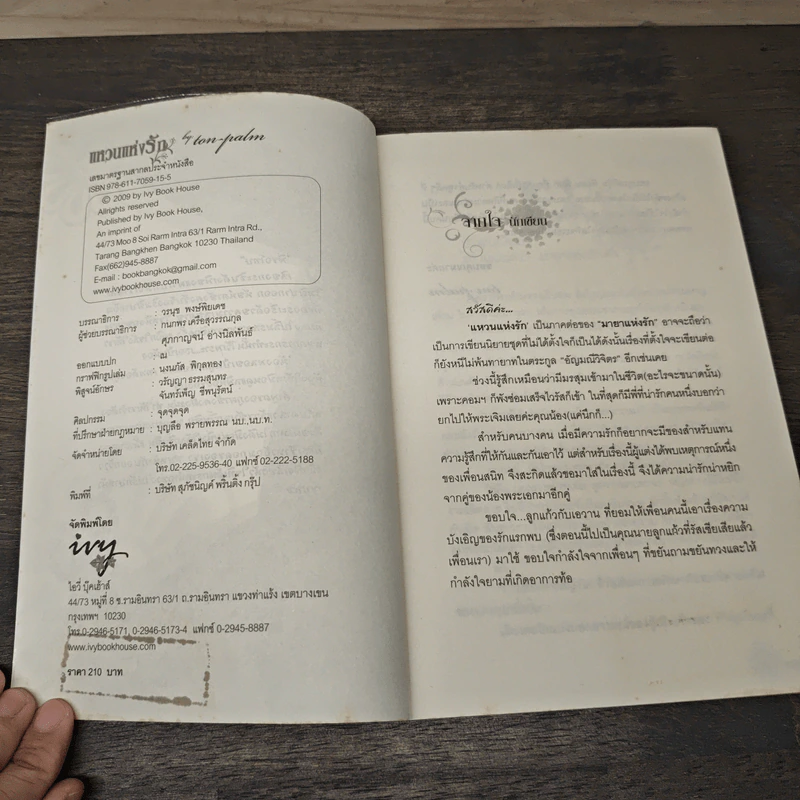 แหวนแห่งรัก by ton-palm
เลขมาตรฐานสากลประจำหนังสือ
ISBN 978-611-7059-15-5
© 2009 by Ivy Book House
Allrights reserved
Published by Ivy Book House,
An imprint of
44/73 Moo 8 Soi Rarm Intra 63/1 Rarm Intra Rd.,
Tarang Bangkhen Bangkok 10230 Thailand
Fax(662)945-8887
E-mail : bookbangkok@gmail.com
www.ivybookhouse.com
บรรณาธิการ : วรนุช พงษ์พิยเดช
ผู้ช่วยบรรณาธิการ : กนกพร เครือสุวรรณกุล
ศุภกาญจน์ อ่างนิลพันธ์
ออกแบบปก : ณ
กราฟฟิกรูปเล่ม : นงนภัส พิกุลทอง
พิสูจน์อักษร : วรัญญา ธรรมสุนทร
จันทร์เพ็ญ ชีพนุรัตน์
ศิลปกรรม : จุดจุดจุด
ที่ปรึกษาฝ่ายกฎหมาย : บุญลือ พรายพรรณ นบ.,นบ.ท.
จัดจำหน่ายโดย : บริษัท เคล็ดไทย จำกัด
โทร.02-225-9536-40 แฟกซ์ 02-222-5188
พิมพ์ที่ : บริษัท สุภัชนิญค์ พริ้นติ้ง กรุ๊ป
จัดพิมพ์โดย
ivy
ไอวี่ บุ๊คเฮ้าส์
44/73 หมู่ที่ 8 ซ.รามอินทรา 63/1 ถ.รามอินทรา แขวงท่าแร้ง เขตบางเขน
กรุงเทพฯ 10230
โทร.0-2946-5171, 0-2946-5173-4 แฟกซ์ 0-2945-8887
www.ivybookhouse.com
ราคา 210 บาท
จากใจ นักเขียน
สวัสดีค่ะ...
'แหวนแห่งรัก' เป็นภาคต่อของ "มายาแห่งรัก" อาจจะถือว่า
เป็นการเขียนนิยายชุดที่ไม่ได้ตั้งใจก็เป็นได้ดังนั้นเรื่องที่ตั้งใจจะเขียนต่อ
ก็ยังหนีไม่พ้นทายาทในตระกูล "อัญมณีวิจิตร" อีกเช่นเคย
ช่วงนี้รู้สึกเหมือนว่ามีมรสุมเข้ามาในชีวิต(อะไรจะขนาดนั้น)
เพราะคอมฯ ก็พังซ่อมเสร็จไวรัสก็เข้า ในที่สุดก็มีพี่ที่น่ารักคนหนึ่งบอกว่า
ยกไปให้พระเจิมเลยค่ะคุณน้อง(แค่นึกก็...)
สำหรับคนบางคน เมื่อมีความรักก็อยากจะมีของสำหรับแทน
ความรู้สึกที่ให้กันและกันเอาไว้ แต่สำหรับเรื่องนี้ผู้แต่งได้พบเหตุการณ์หนึ่ง
ของเพื่อนสนิท จึงสะกิดแล้วขอมาใส่ในเรื่องนี้ จึงได้ความน่ารักน่าหยิก
จากคู่ของน้องพระเอกมาอีกคู่
ขอบใจ...ลูกแก้วกับเอวาน ที่ยอมให้เพื่อนคนนี้เอาเรื่องความ
บังเอิญของรักแรกพบ (ซึ่งตอนนี้ไปเป็นคุณนายลูกแก้วที่รัสเซียเสียแล้ว
เพื่อนเรา) มาใช้ ขอบใจกำลังใจจากเพื่อนๆ ที่ขยันถามขยันทวงและให้
กำลังใจยามที่เกิดอาการท้อ